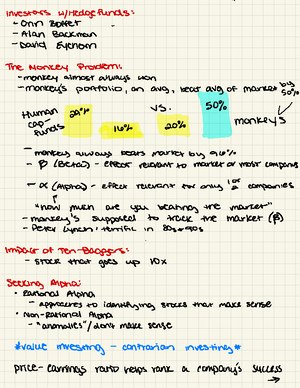 Investors w/Hedgefunds:
- Orin Boffet
- Alan Backman
- David Eyehorn
The Monkey Problem:
- monkey almost always won
- monkey's portfolio, on avg, beat avg of market by 50%
Human cap-funds 29% 16% vs. 20% 50% monkeys ✓
- monkey always beats market by 9.6%
- β (Beta) - effect relevant to market or most companies
- α (Alpha) - effect relevant for only 1 or a companies
↳ "how much are you beating the market"
- monkey's supposed to track the market (β)
- Peter Lynch: terrific in 80s & 90s
Impact of Ten-Baggers:
- stock that goes up 10x
Seeking Alpha:
• Rational Alpha
- approaches to identifying stocks that make sense
• Non-Rational Alpha
- "anomalies"/don't make sense
*value investing - contrarian investing*
price-earnings ratio helps rank a company's success
→